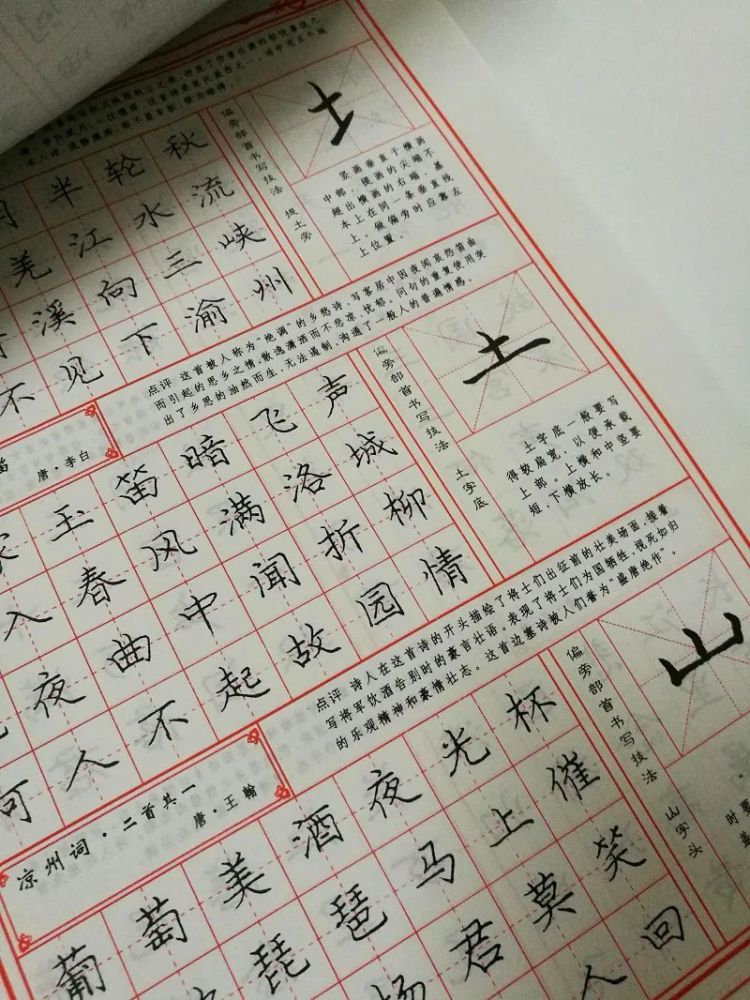 土
偏旁部首书写技法 提土旁
竖画垂直于横画
中部，提画的尖端不
超出横画的右端，基
本上在同一条垂直线
上。做偏旁时应靠左
上位置。
半轮秋
羌江水流
溪向三峡
不见下渝州
点评 这首被人称为“绝调”的乡愁诗，写客居中因夜闻哀怨笛曲
而引起的思乡之情，散逸潇洒而不悲凉，忧郁。问句的重复使用
出了乡思的油然而生，无法遏制，沟通了一般人的普遍情感。
土
偏旁部首书写技法 土字底
土字底一般要写
得较扁宽，以便承载
上部。上横和中竖要
短，下横放长。
笛
唐·李白
家玉笛暗飞声
入春风满洛城
夜曲中闻折柳
人不起故园情
点评 诗人在这首诗的开头描绘了将士们出征前的壮美场面，接着
写将军饮酒告别时的豪言壮语。表现了将士们为国牺牲，视死如归
的乐观精神和豪情壮志。这首边塞诗被人们誉为“盛唐绝作”。
山
偏旁部首书写技法 山字头
时要
凉州词·二首共一
唐·王翰
葡萄美酒夜光杯
琵琶马上催
君莫笑
人回